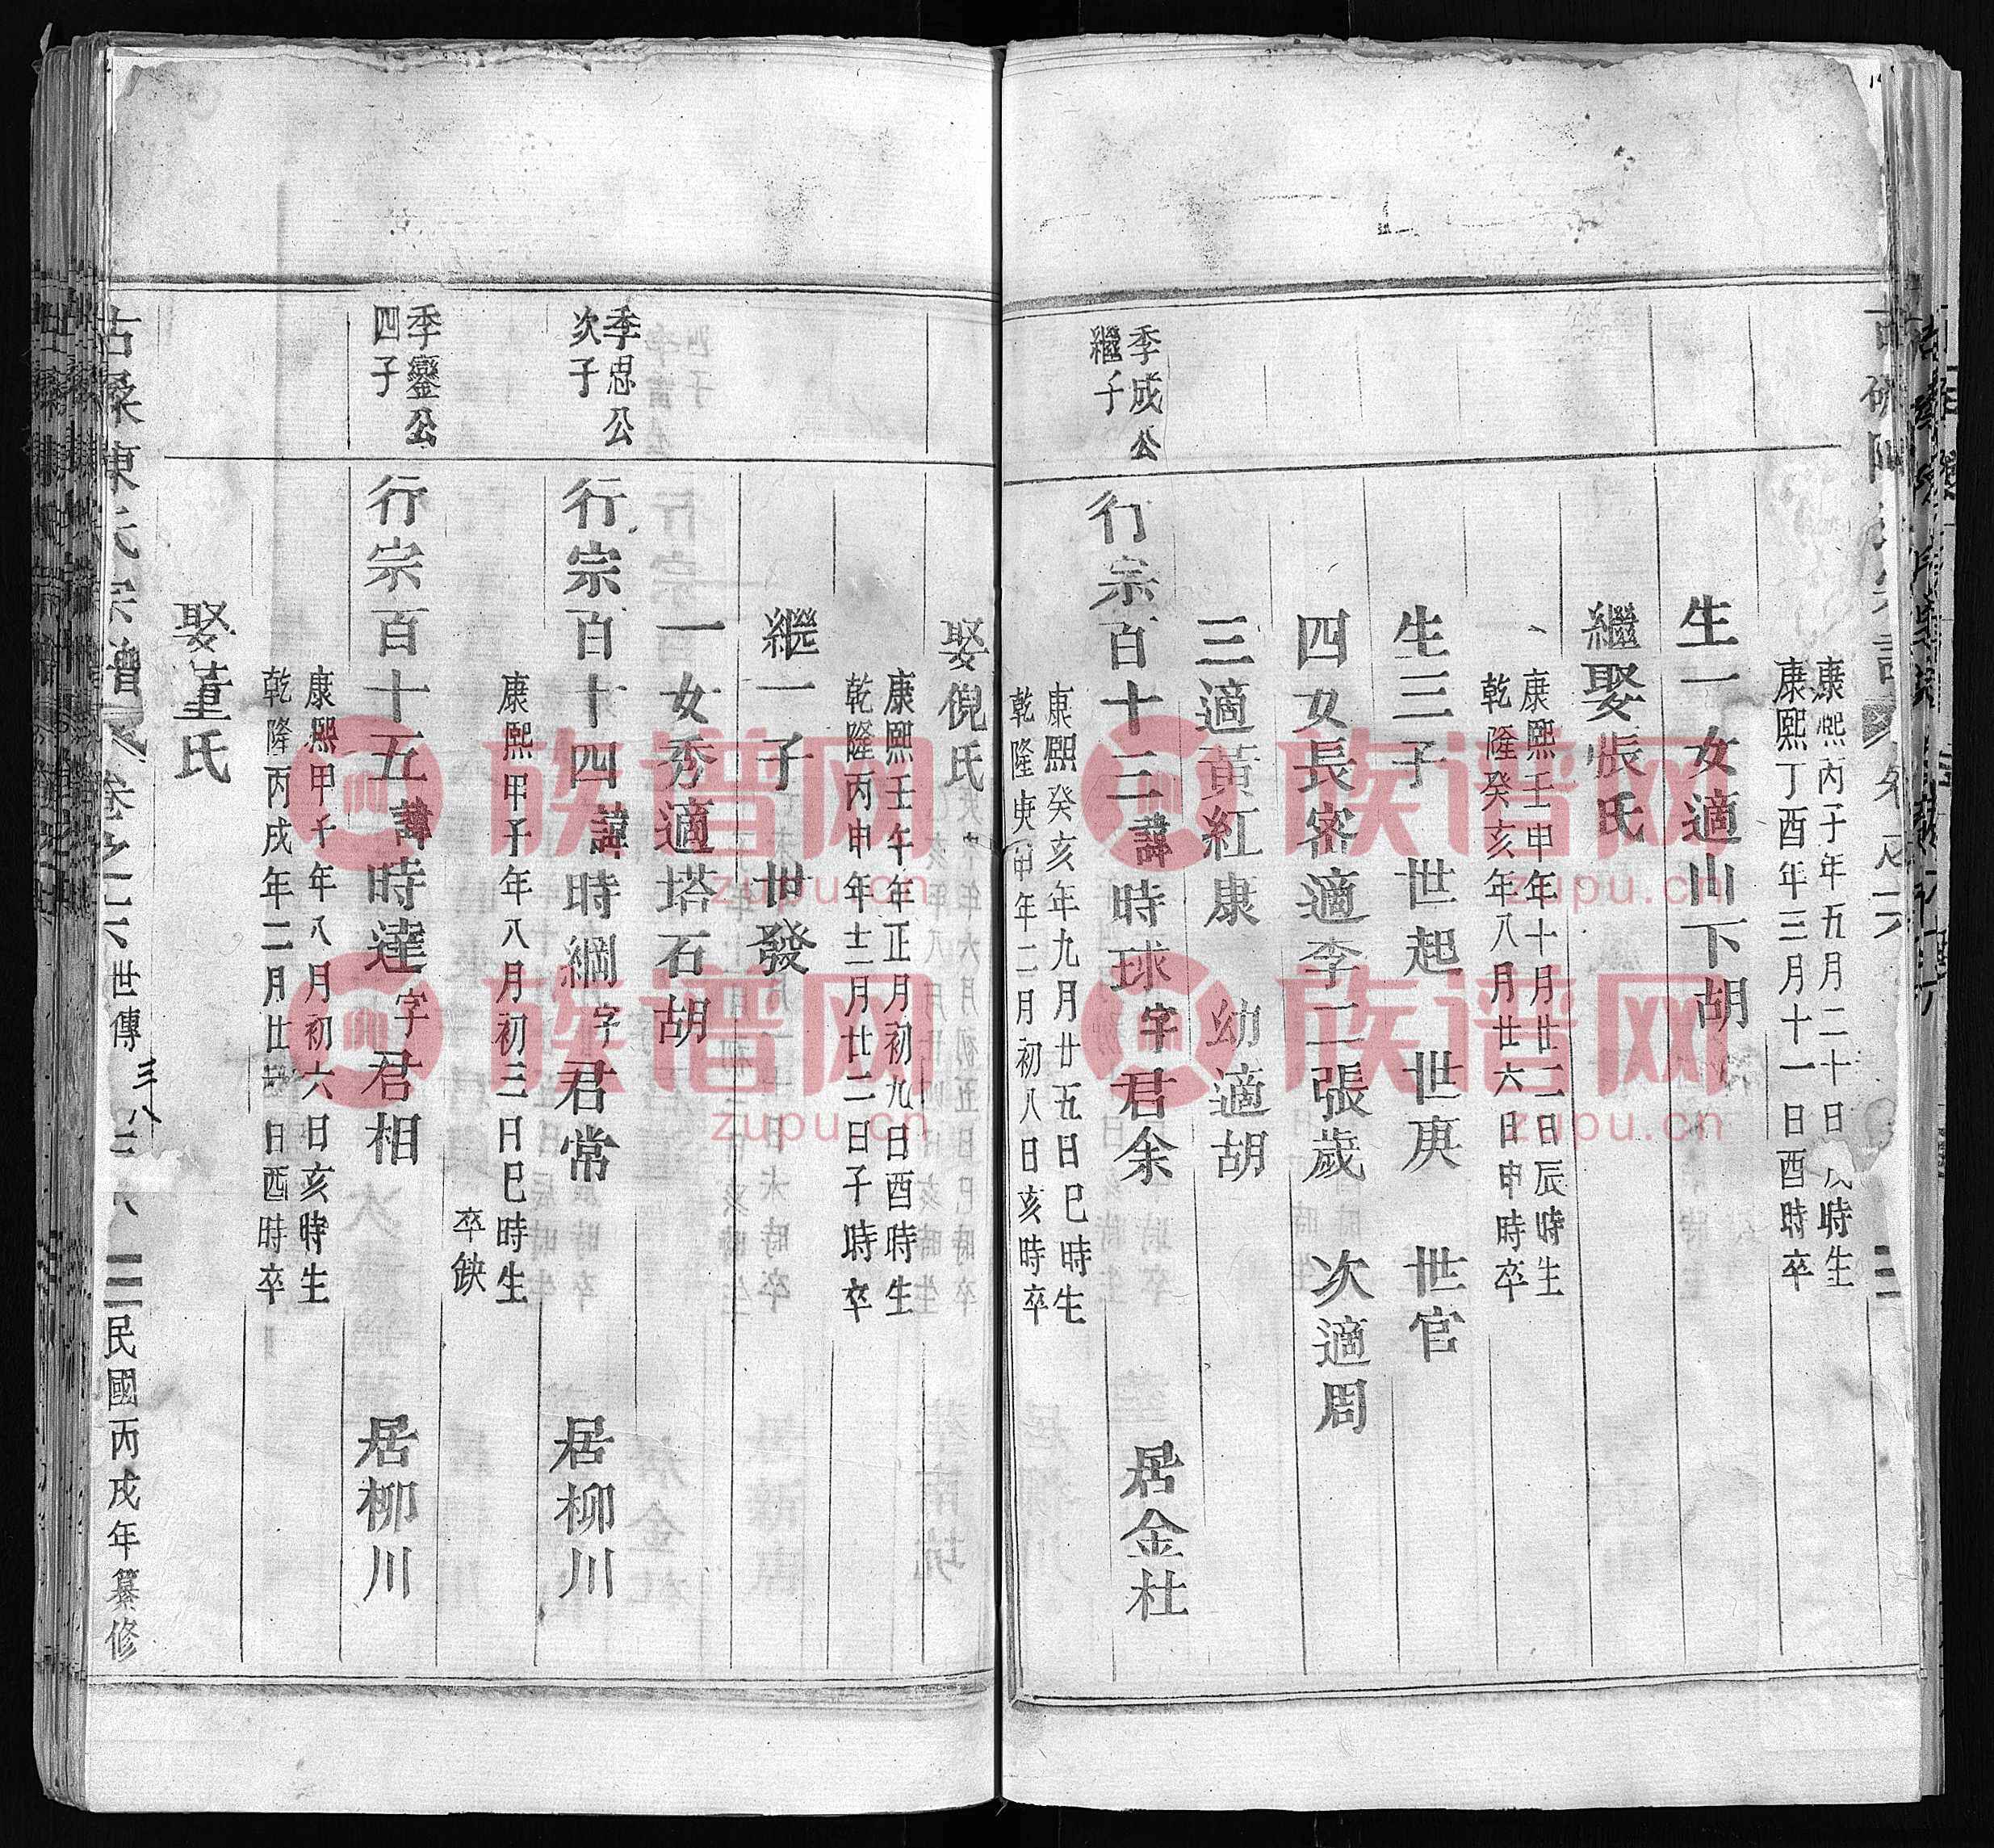 康熙丙子年五月二十日 時生
康熙丁酉年三月十一日酉時卒
生一女適山下胡
繼娶張氏
康熙壬申年十月廿二日辰時生
乾隆癸亥年八月廿六日申時卒
生三子 世起 世庚 世官
四女長密適李二張歲 次適周
三適黃紅康 幼適胡
季成公
繼子
行宗百十三諱時球字君余 居金杜
康熙癸亥年九月廿五日巳時生
乾隆庚申年二月初八日亥時卒
娶倪氏
康熙壬午年正月初九日酉時生
乾隆丙申年十二月廿二日子時卒
繼一子 世發
一女秀適塔石胡
季思公
次子
行宗百十四諱時綱字君常 居柳川
康熙甲子年八月初三日巳時生
卒缺
季鑾公
四子
行宗百十五諱時達字君相 居柳川
康熙甲午年八月初六日亥時生
乾隆丙戌年二月廿 日酉時卒
娶董氏
古 陳氏宗譜 卷之六 世傳 三八 民國丙戌年纂修
族谱网
zupu.cn
族谱网
zupu.cn
族谱网
zupu.cn
族谱网
zupu.cn